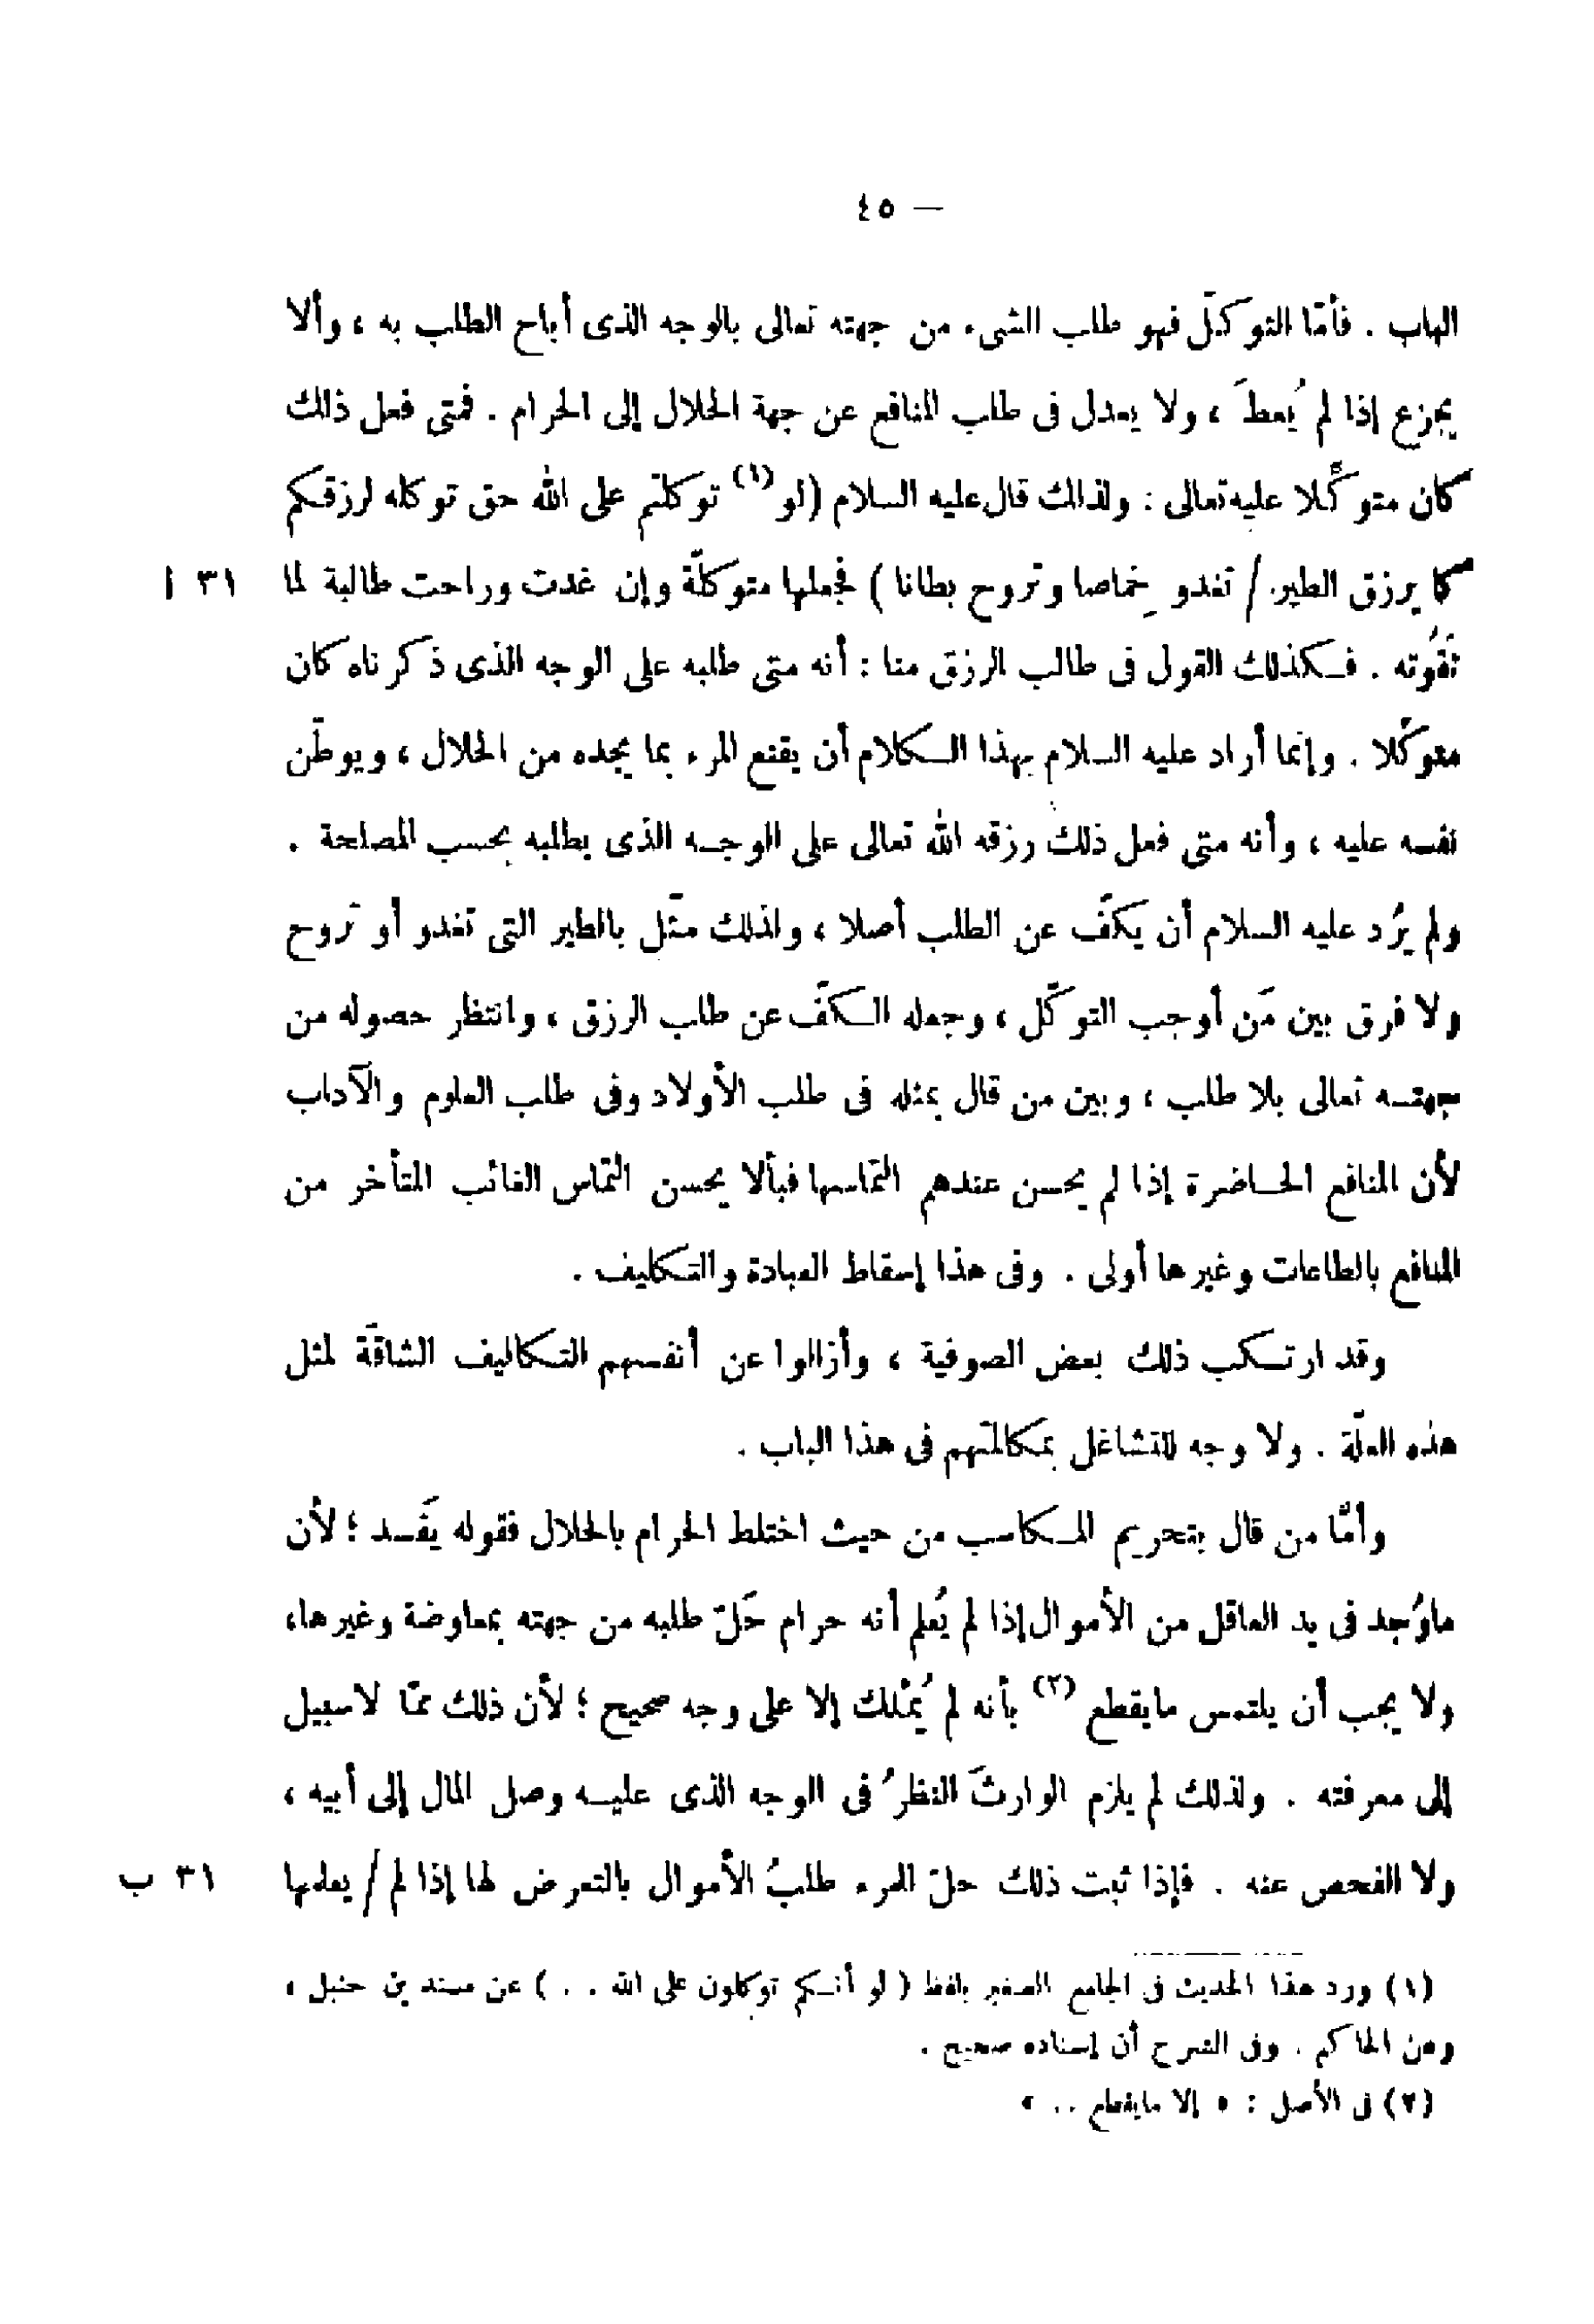 — ٤٥
الباب . فأمّا التوكّل فهو طلب الشىء من جهته تعالى بالوجه الذى أباح الطلب به ، وألا
يجزع إذا لم يُعطَ ، ولا يعدل فى طلب المنافع عن جهة الحلال إلى الحرام . فمتى فعل ذلك
كان متوكِّلا عليه تعالى : ولذلك قال عليه السلام (لو (١) توكلتم على الله حق توكله لرزقكم
كما يرزق الطير / تغدو خِماصا وتروح بطانا ) فجعلها متوكلّة وإن غدت وراحت طالبة لما ٣١ ا
تَقُوته . فكذلك القول فى طالب الرزق منا : أنه متى طلبه على الوجه الذى ذكرناه كان
متوكّلا . وإنما أراد عليه السلام بهذا الكلام أن يقنع المرء بما يجده من الحلال ، ويوطّن
نفسه عليه ، وأنه متى فعل ذلك رزقه الله تعالى على الوجه الذى يطلبه بحسب المصلحة .
ولم يُرد عليه السلام أن يكفّ عن الطلب أصلا ، ولذلك مثّل بالطير التى تغدو أو تروح
ولا فرق بين مَن أوجب التوكّل ، وجعله الكفّ عن طلب الرزق ، وانتظر حصوله من
جهته تعالى بلا طلب ، وبين من قال بمثله فى طلب الأولاد وفى طلب العلوم والآداب
لأن المنافع الحاضرة إذا لم يحسن عندهم التماسها فبألا يحسن التماس الغائب المتأخر من
المنافع بالطاعات وغيرها أولى . وفى هذا إسقاط العبادة والتكليف .
وقد ارتكب ذلك بعض الصوفية ، وأزالوا عن أنفسهم التكاليف الشاقّة لمثل
هذه العلّة . ولا وجه للتشاغل بمكالمتهم فى هذا الباب .
وأمّا من قال بتحريم المكاسب من حيث اختلط الحرام بالحلال فقوله يَفسد ؛ لأن
ماوُجد فى يد العاقل من الأموال إذا لم يُعلم أنه حرام حَلّ طلبه من جهته بمعاوضة وغيرها،
ولا يجب أن يلتمس مايقطع (٢) بأنه لم يُمْلك إلا على وجه صحيح ؛ لأن ذلك ممّا لاسبيل
إلى معرفته . ولذلك لم يلزم الوارثَ النظرُ فى الوجه الذى عليه وصل المال إلى أبيه ،
ولا الفحص عنه . فإذا ثبت ذلك حلّ للمرء طلبُ الأموال بالتعرض لها إذا لم / يعلمها ٣١ ب
(١) ورد هذا الحديث فى الجامع الصغير بلفظ ( لو أنكم توكلون على الله . . ) عن مسند بن حنبل ،
وعن الحاكم . وفى الشرح أن إسناده صحيح .
(٢) فى الأصل : « إلا مايقطع .. »